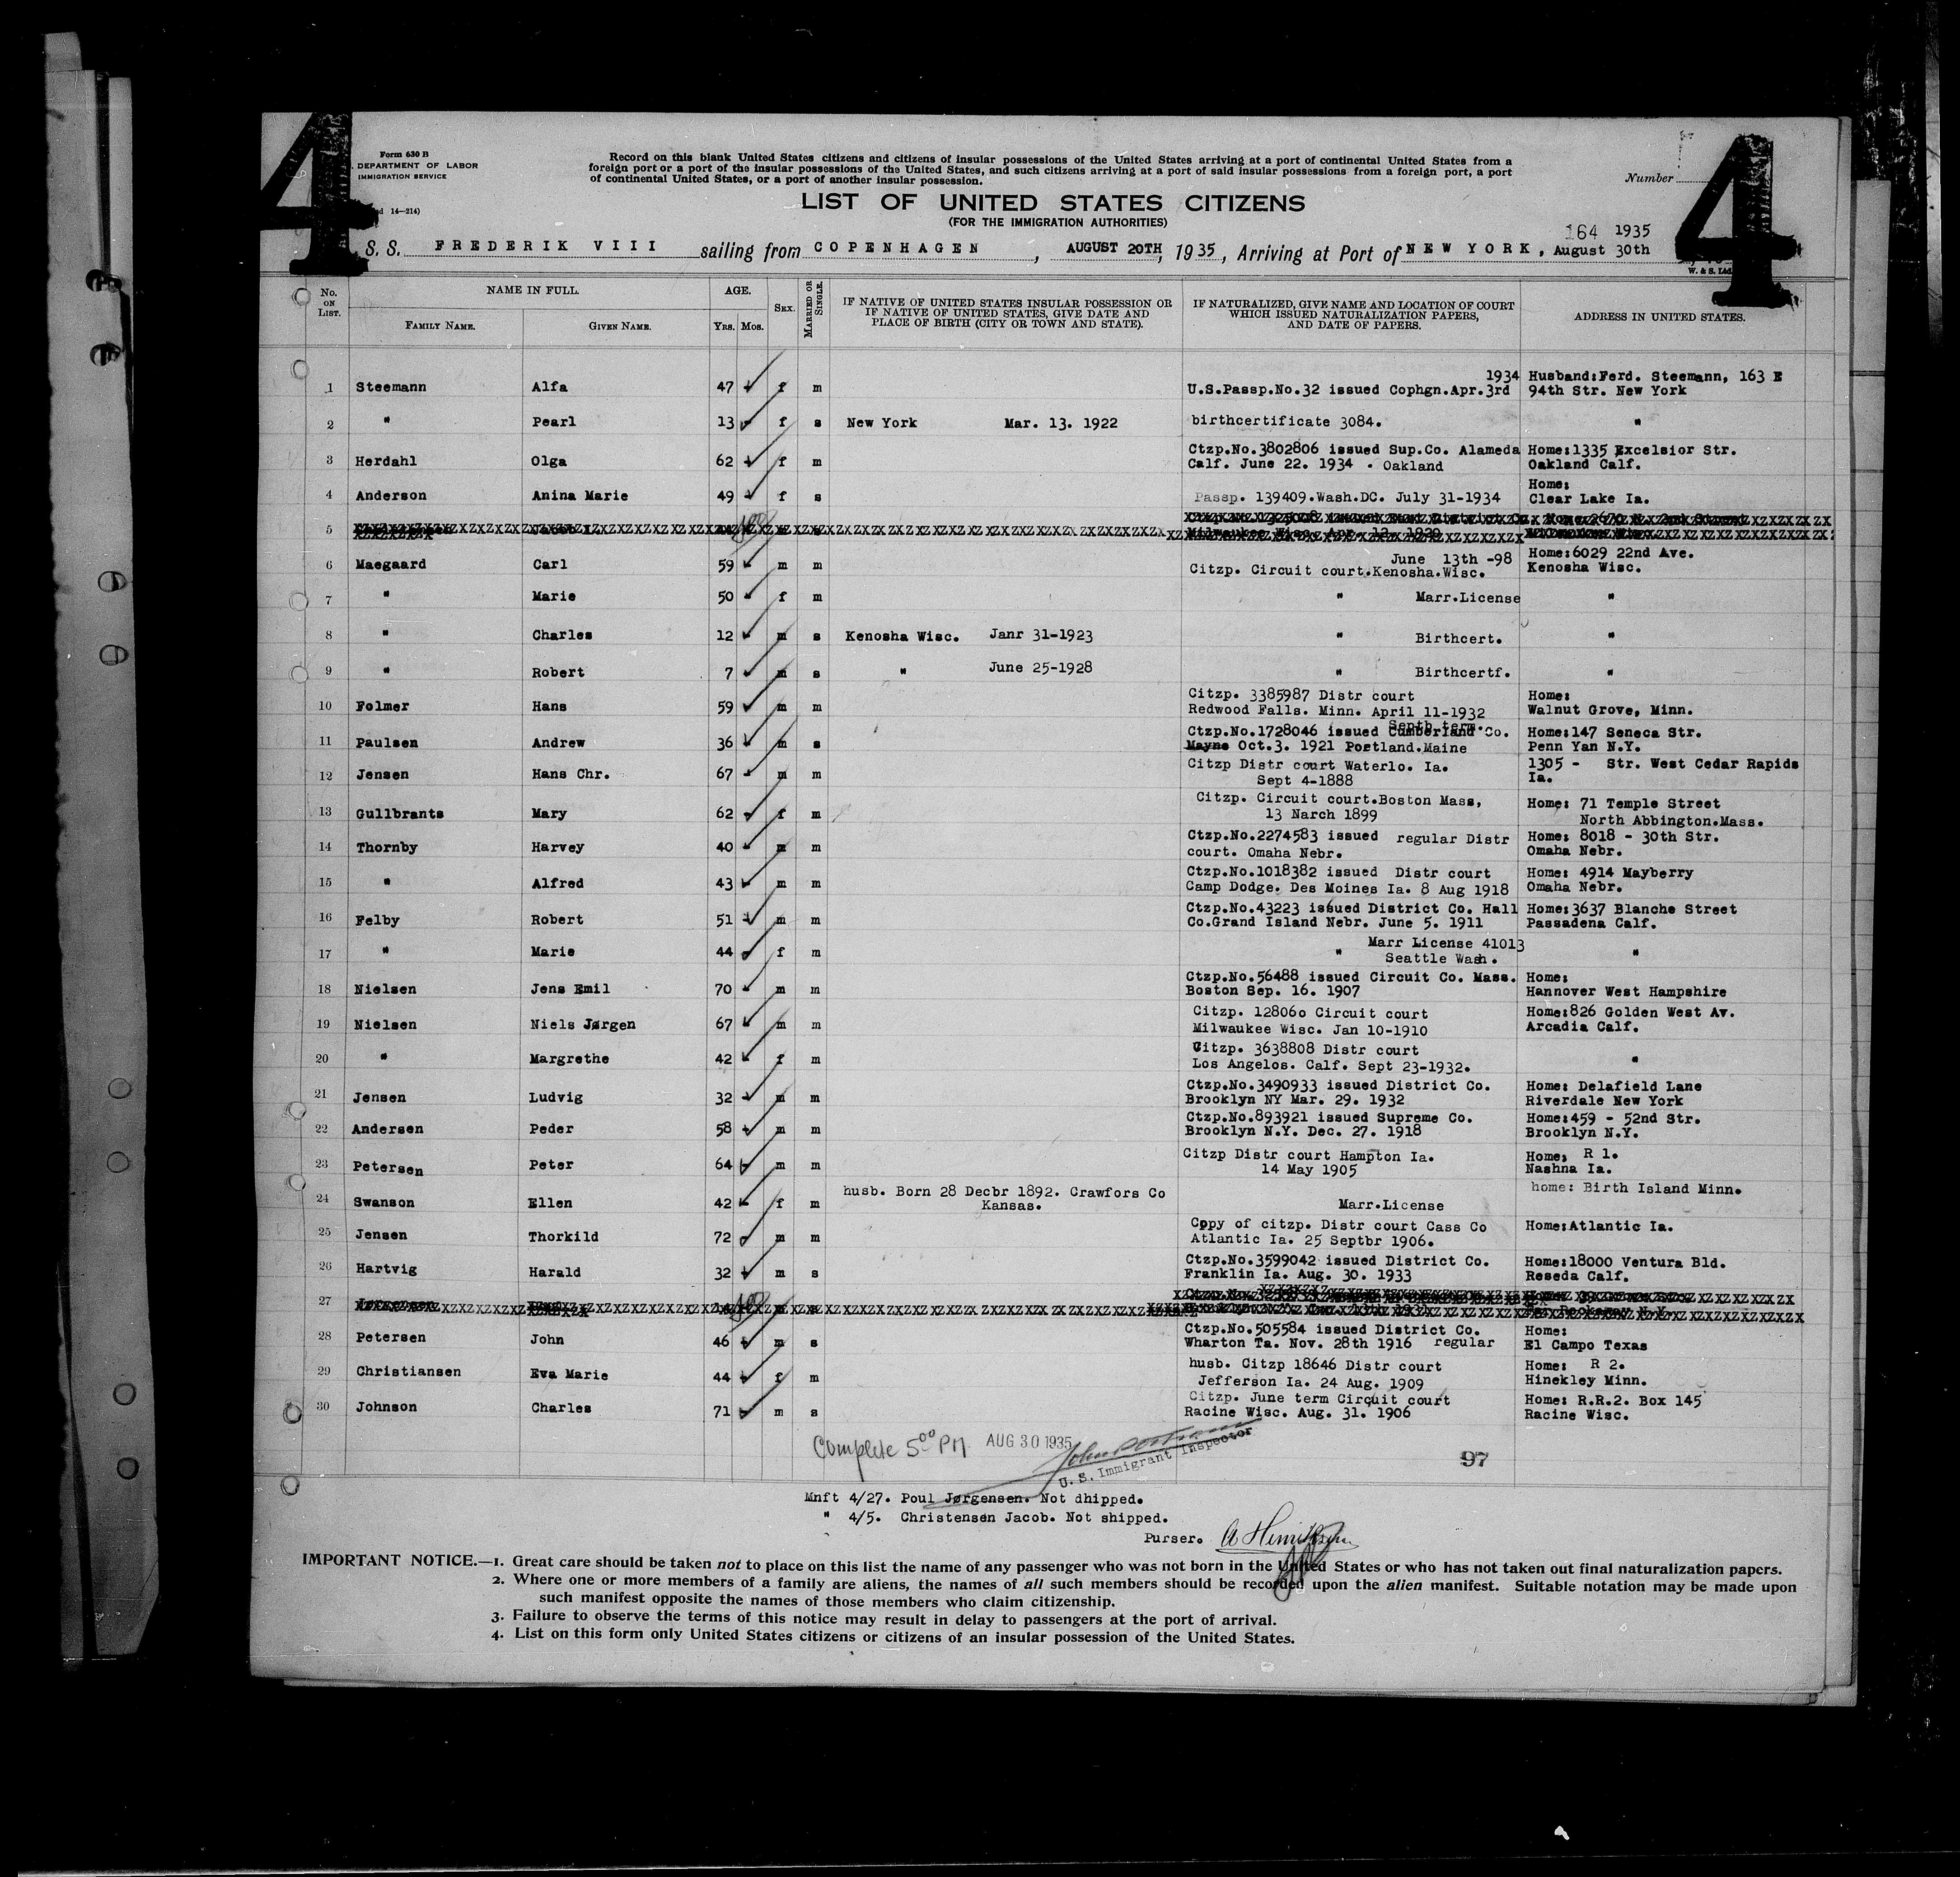 4
4
Form 630 B
DEPARTMENT OF LABOR
IMMIGRATION SERVICE
14—214)
Record on this blank United States citizens and citizens of insular possessions of the United States arriving at a port of continental United States from a
foreign port or a port of the insular possessions of the United States, and such citizens arriving at a port of said insular possessions from a foreign port, a port
of continental United States, or a port of another insular possession.
Number
LIST OF UNITED STATES CITIZENS
(FOR THE IMMIGRATION AUTHORITIES)
164 1935
S. S. FREDERIK VIII sailing from COPENHAGEN, AUGUST 20TH, 1935, Arriving at Port of NEW YORK, August 30th
W. & S. Ltd.
No. ON LIST. NAME IN FULL. AGE. SEX. MARRIED OR SINGLE. IF NATIVE OF UNITED STATES INSULAR POSSESSION OR IF NATIVE OF UNITED STATES, GIVE DATE AND PLACE OF BIRTH (CITY OR TOWN AND STATE). IF NATURALIZED, GIVE NAME AND LOCATION OF COURT WHICH ISSUED NATURALIZATION PAPERS, AND DATE OF PAPERS. ADDRESS IN UNITED STATES.
FAMILY NAME. GIVEN NAME. YRS. MOS.
1934 Husband:Ferd. Steemann, 163 E
1 Steemann Alfa 47 f m U.S.Passp.No.32 issued Cophgn.Apr.3rd 94th Str. New York
2 " Pearl 13 f s New York Mar. 13. 1922 birthcertificate 3084. "
Ctzp.No.3802806 issued Sup.Co. Alameda Home:1335 Excelsior Str.
3 Herdahl Olga 62 f m Calf. June 22. 1934 . Oakland Oakland Calf.
Home:
4 Anderson Anina Marie 49 f s Passp. 139409.Wash.DC. July 31-1934 Clear Lake Ia.
5
June 13th -98 Home:6029 22nd Ave.
6 Maegaard Carl 59 m m Citzp. Circuit court.Kenosha.Wisc. Kenosha Wisc.
7 " Marie 50 f m " Marr.License "
8 " Charles 12 m s Kenosha Wisc. Janr 31-1923 " Birthcert. "
9 " Robert 7 m s " June 25-1928 " Birthcertf. "
Citzp. 3385987 Distr court Home:
10 Folmer Hans 59 m m Redwood Falls. Minn. April 11-1932 Walnut Grove, Minn.
Septb term.
Ctzp.No.1728046 issued Cumberland Co. Home:147 Seneca Str.
11 Paulsen Andrew 36 m s Mayne Oct.3. 1921 Portland.Maine Penn Yan N.Y.
Citzp Distr court Waterlo. Ia. 1305 - Str. West Cedar Rapids
12 Jensen Hans Chr. 67 m m Sept 4-1888 Ia.
Citzp. Circuit court.Boston Mass, Home: 71 Temple Street
13 Gullbrants Mary 62 f m 13 Narch 1899 North Abbington.Mass.
Ctzp.No.2274583 issued regular Distr Home: 8018 - 30th Str.
14 Thornby Harvey 40 m m court. Omaha Nebr. Omaha Nebr.
Ctzp.No.1018382 issued Distr court Home: 4914 Mayberry
15 " Alfred 43 m m Camp Dodge. Des Moines Ia. 8 Aug 1918 Omaha Nebr.
Ctzp.No.43223 issued District Co. Hall Home:3637 Blanche Street
16 Felby Robert 51 m m Co.Grand Island Nebr. June 5. 1911 Passadena Calf.
Marr License 41013
17 " Marie 44 f m " Seattle Wash. "
Ctzp.No.56488 issued Circuit Co. Mass. Home:
18 Nielsen Jens Emil 70 m m Boston Sep. 16. 1907 Hannover West Hampshire
Citzp. 12806o Circuit court Home:826 Golden West Av.
19 Nielsen Niels Jørgen 67 m m Milwaukee Wisc. Jan 10-1910 Arcadia Calf.
Citzp. 3638808 Distr court
20 " Margrethe 42 f m Los Angelos. Calf. Sept 23-1932. "
Ctzp.No.3490933 issued District Co. Home: Delafield Lane
21 Jensen Ludvig 32 m m Brooklyn NY Mar. 29. 1932 Riverdale New York
Ctzp.No.893921 issued Supreme Co. Home:459 - 52nd Str.
22 Andersen Peder 58 m m Brooklyn N.Y. Dec. 27. 1918 Brooklyn N.Y.
Citzp Distr court Hampton Ia. Home, R 1.
23 Petersen Peter 64 m m 14 May 1905 Nashna Ia.
husb. Born 28 Decbr 1892. Crawfors Co home: Birth Island Minn.
24 Swanson Ellen 42 f m Kansas. Marr.License
Copy of citzp. Distr court Cass Co Home:Atlantic Ia.
25 Jensen Thorkild 72 m m Atlantic Ia. 25 Septbr 1906.
Ctzp.No.3599042 issued District Co. Home:18000 Ventura Bld.
26 Hartvig Harald 32 m s Franklin Ia. Aug. 30. 1933 Reseda Calf.
27
Ctzp.No.505584 issued District Co. Home:
28 Petersen John 46 m s Wharton Ta. Nov. 28th 1916 regular El Campo Texas
husb. Citzp 18646 Distr court Home: R 2.
29 Christiansen Eva Marie 44 f m Jefferson Ia. 24 Aug. 1909 Hinekley Minn.
Citzp. June term Circuit court Home: R.R.2. Box 145
30 Johnson Charles 71 m s Racine Wisc. Aug. 31. 1906 Racine Wisc.
Complete 5⁰⁰ PM AUG 30 1935
U. S. Immigrant Inspector
97
Mnft 4/27. Poul Jørgensen. Not dhipped.
" 4/5. Christensen Jacob. Not shipped.
Purser.
IMPORTANT NOTICE.—1. Great care should be taken not to place on this list the name of any passenger who was not born in the United States or who has not taken out final naturalization papers.
2. Where one or more members of a family are aliens, the names of all such members should be recorded upon the alien manifest. Suitable notation may be made upon
such manifest opposite the names of those members who claim citizenship.
3. Failure to observe the terms of this notice may result in delay to passengers at the port of arrival.
4. List on this form only United States citizens or citizens of an insular possession of the United States.